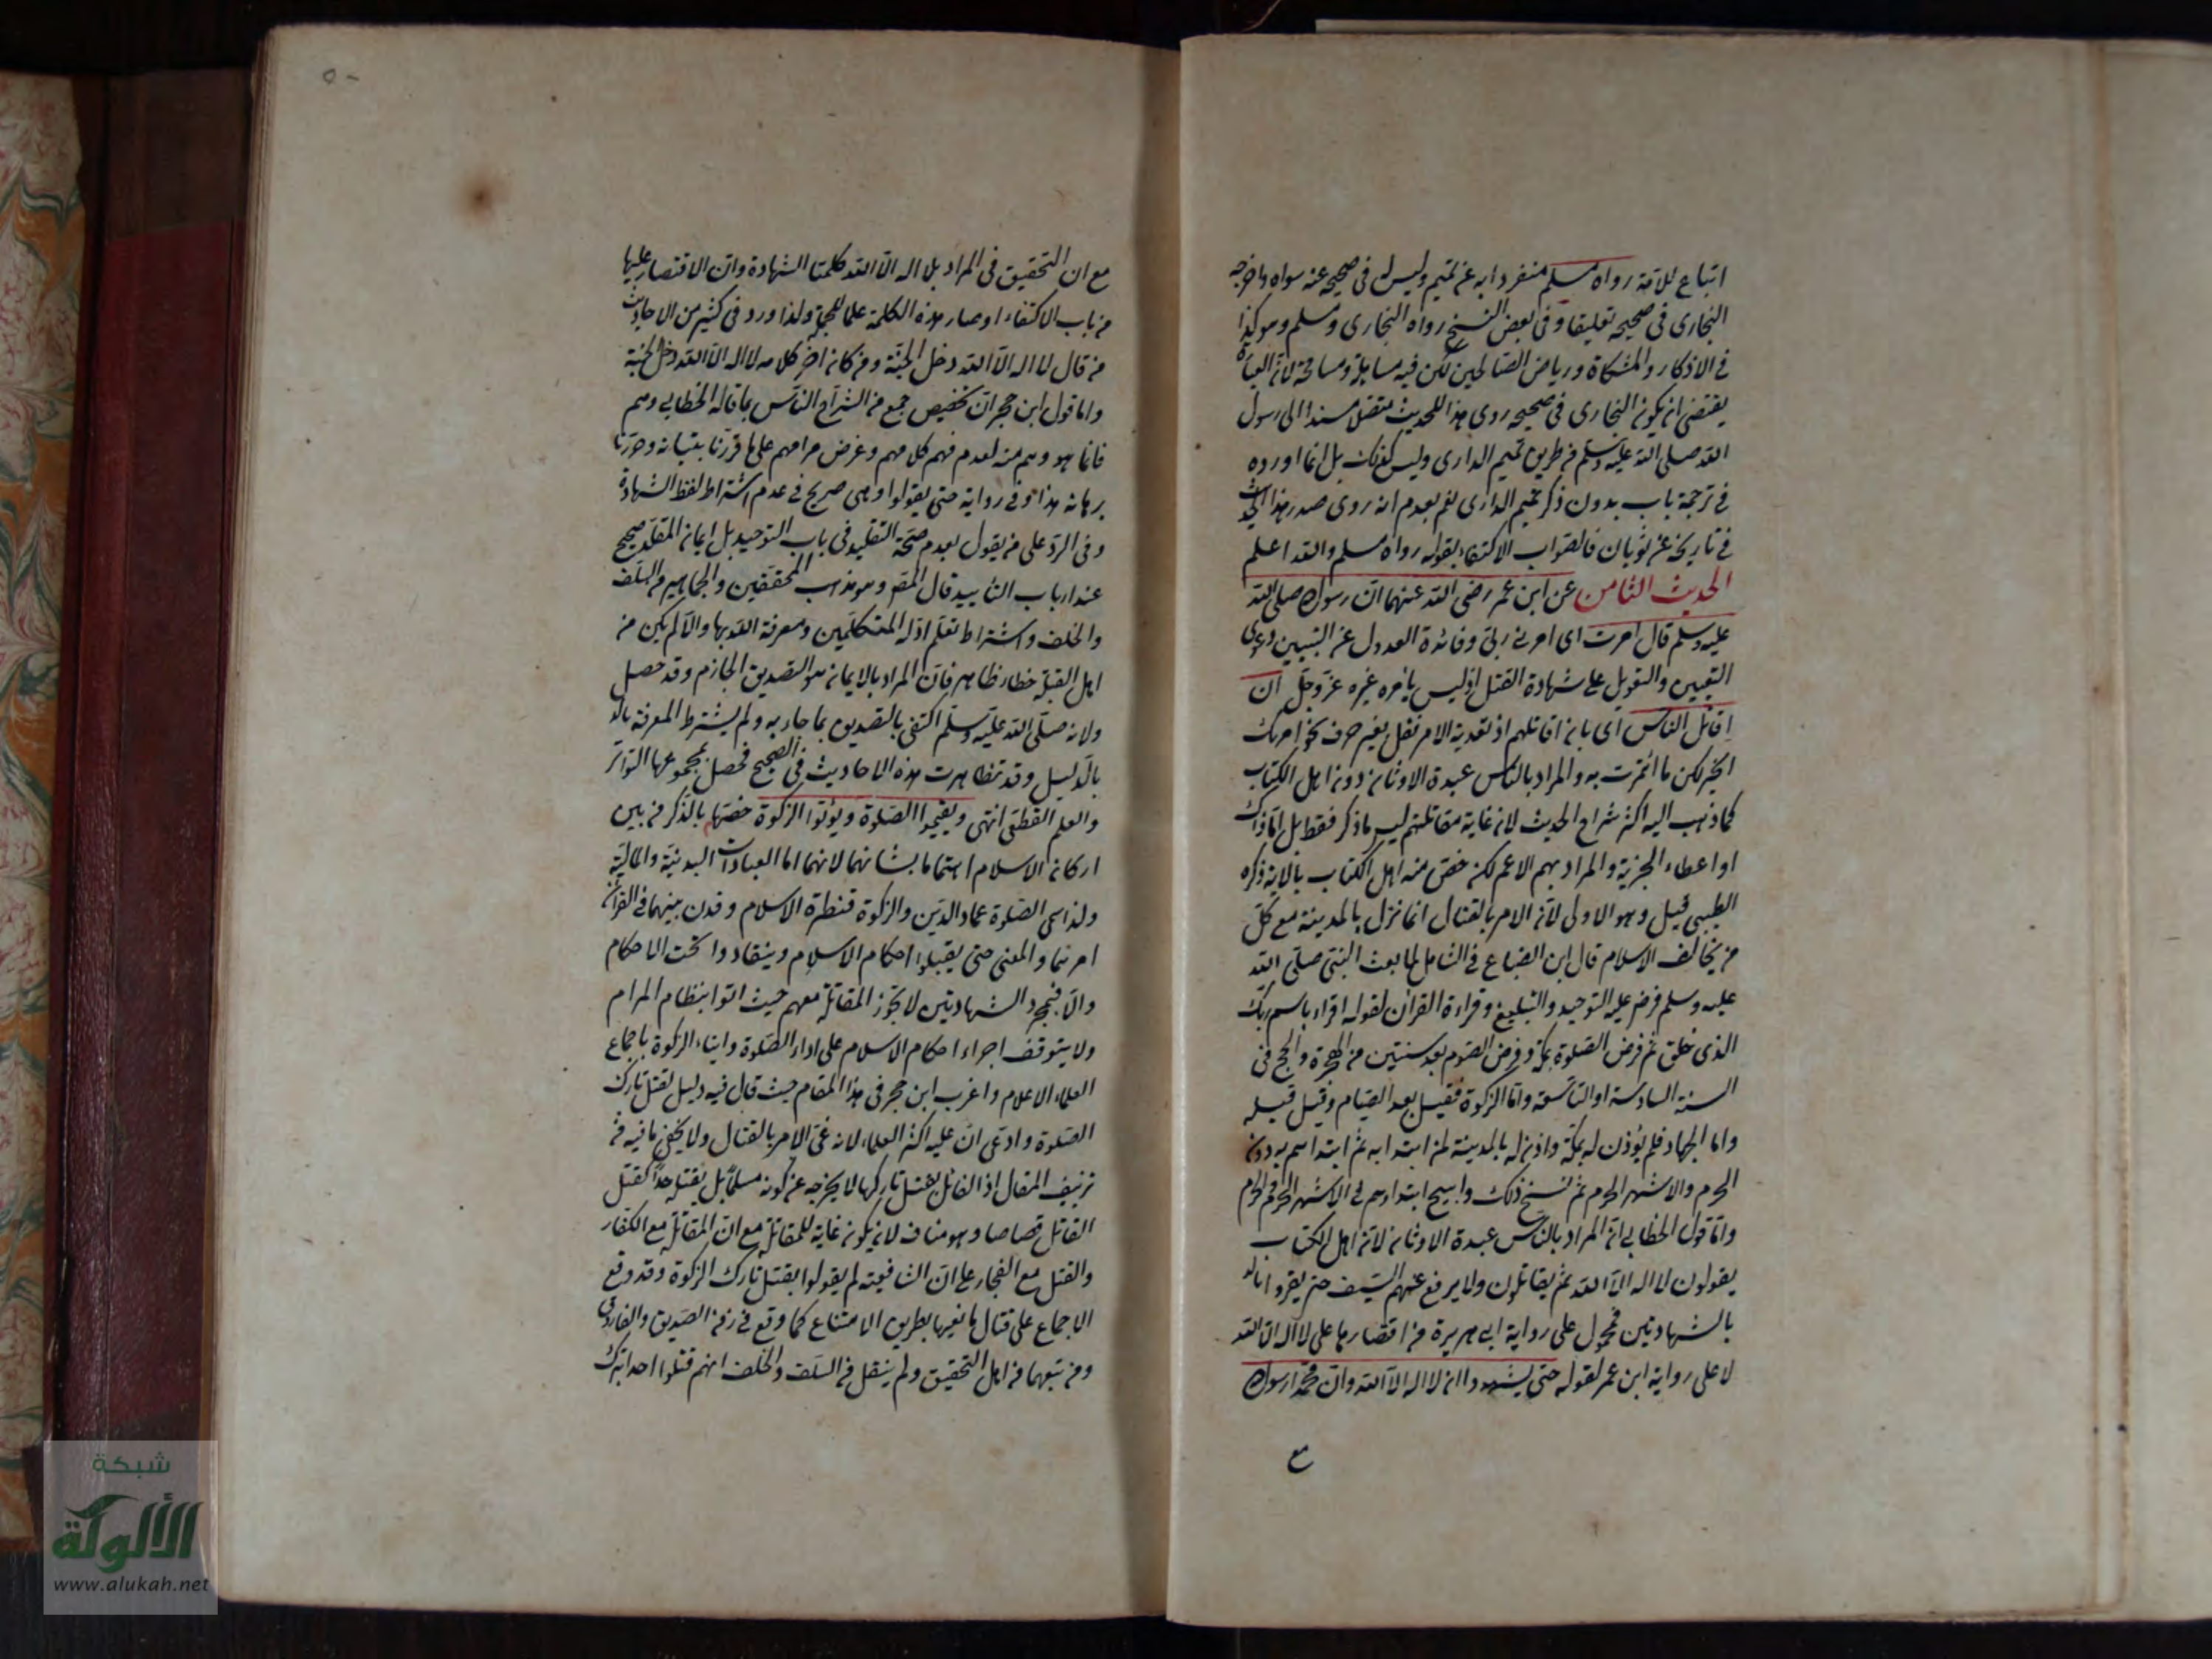 اتباع للائمة رواه مسلم منفردا به عن تميم وليس له في صحيحه عنه سواه واخرجه
البخارى في صحيحه تعليقا وفي بعض النسخ رواه البخارى ومسلم وهو كذا
في الاذكار والمشكاة ورياض الصالحين لكن فيه مساهلة ومسامحة لان العبارة
يقتضي ان يكون البخارى في صحيحه روى هذا الحديث متصلا مسندا الى رسول
الله صلى الله عليه وسلم من طريق تميم الدارى وليس كذلك بل انما اورده
في ترجمة باب بدون ذكر تميم الدارى نعم بعدم انه روى صدر هذا الحديث
في تاريخه عن ثوبان فالصواب الاكتفاء بقوله رواه مسلم والله اعلم
الحديث الثامن عن ابن عمر رضى الله عنهما ان رسول الله صلى الله
عليه وسلم قال امرت اى امرنى ربى وفائدة العدول عن التبيين دعوى
التعيين والتعويل على شهادة العقل اذ ليس يامره غيره عز وجل ان
اقاتل الناس اى بان اقاتلهم اذ تعدية الامر نقل بغير حرف نحو امرتك
الخير لكن ما ائتمرت به والمراد بالناس عبدة الاوثان دون اهل الكتاب
كما ذهب اليه اكثر شراح الحديث لان غاية مقاتلتهم ليس ما ذكر فقط بل اما ذاك
او اعطاء الجزية والمراد بهم الاعم لكن خص منه اهل الكتاب بالاية ذكره
الطيبى قيل وهو الاولى لان الامر بالقتال انما نزل بالمدينة مع كل
من يخالف الاسلام قال ابن الصباغ في الشامل لما بعث النبى صلى الله
عليه وسلم فرض عليه التوحيد والتبليغ وقراءة القران لقوله اقراء باسم ربك
الذى خلق ثم فرض الصلوة بمكة وفرض الصوم بعد سنتين من الهجرة والحج في
السنة السادسة او التاسعة واما الزكوة فقيل بعد الصيام وقيل قبله
واما الجهاد فلم يؤذن له بمكة واذن له بالمدينة لمن ابتدا به ثم ابتداهم به دون
الحرم والاشهر الحرم ثم نسخ ذلك وابيح ابتداؤهم في الاشهر الحرم والحرم
واما قول الخطابى ان المراد بالناس عبدة الاوثان لان اهل الكتاب
يقولون لا اله الا الله ثم يقاتلون ولا يرفع عنهم السيف حتى يقروا
بالشهادتين فمحمول على رواية ابى هريرة من اقتصارها على لا اله الا الله
لا على رواية ابن عمر لقوله حتى يشهدوا ان لا اله الا الله وان محمدا رسول الله
مع
٥٠
مع ان التحقيق في المراد بلا اله الا الله كلمتا الشهادة وان الاقتصار عليها
من باب الاكتفاء او صار هذه الكلمة علما للمجلة ولذا ورد في كثير من الاحاديث
من قال لا اله الا الله دخل الجنة ومن كان اخر كلامه لا اله الا الله دخل الجنة
واما قول ابن حجر ان تخصيص جمع من الشراح الناس بما قاله الخطابى وهم
فانما هو وهم منه لعدم فهم كلامهم وغرض مرامهم على ما قررنا بتبيانه وحررنا
برهانه هذا وفي رواية حتى يقولوا وهى صريح في عدم اشتراط لفظ الشهادة
وفي الرد على من يقول بعدم صحة التقليد في باب التوحيد بل ايمان المقلد صحيح
عند ارباب التاييد قال المص وهو مذهب المحققين والجماهير من السلف
والخلف واشتراط تعلم ادلة المتكلمين ومعرفة الله بها والا لم يكن من
اهل القبلة خطاء ظاهر فان المراد بالايمان هو التصديق الجازم وقد حصل
ولانه صلى الله عليه وسلم اكتفى بالتصديق بما جاء به ولم يشترط المعرفة
بالدليل وقد تظاهرت هذه الاحاديث في الصحيح فحصل بمجموعها التواتر
والعلم القطعى انتهى ويقيموا الصلوة ويؤتوا الزكوة خصها بالذكر من بين
اركان الاسلام اهتماما بشانهما لانهما اما العبادات البدنية والمالية
ولذا سمى الصلوة عماد الدين والزكوة قنطرة الاسلام وقرن بينهما في القران
امرنما والمعنى حتى يقبلوا احكام الاسلام وينقادوا تحت الاحكام
والا فبمجرد الشهادتين لا تجوز المقاتلة معهم حيث اتوا بنظام المرام
ولا يتوقف اجراء احكام الاسلام على اداء الصلوة وايتاء الزكوة باجماع
العلماء الاعلام واغرب ابن حجر في هذا المقام حيث قال فيه دليل لقتل تارك
الصلوة وادعى ان عليه اكثر العلماء لانه غى الامر بالقتال ولا يخفى ما فيه من
تزييف المقال اذ القائل بقتل تاركها لا يخرجه عن كونه مسلما بل يقتله حدا كقتل
القاتل قصاصا وهو مناف لان يكون غاية للمقاتلة مع ان المقاتلة مع الكفار
والقتل مع الفجار على ان الشافعية لم يقولوا بقتل تارك الزكوة وقد وقع
الاجماع على قتال مانعيها بطريق الامتناع كما وقع في زمن الصديق والفاروق
ومن تبعهما من اهل التحقيق ولم ينقل من السلف والخلف انهم قتلوا احدا بترك
شبكة
الألوكة
www.alukah.net